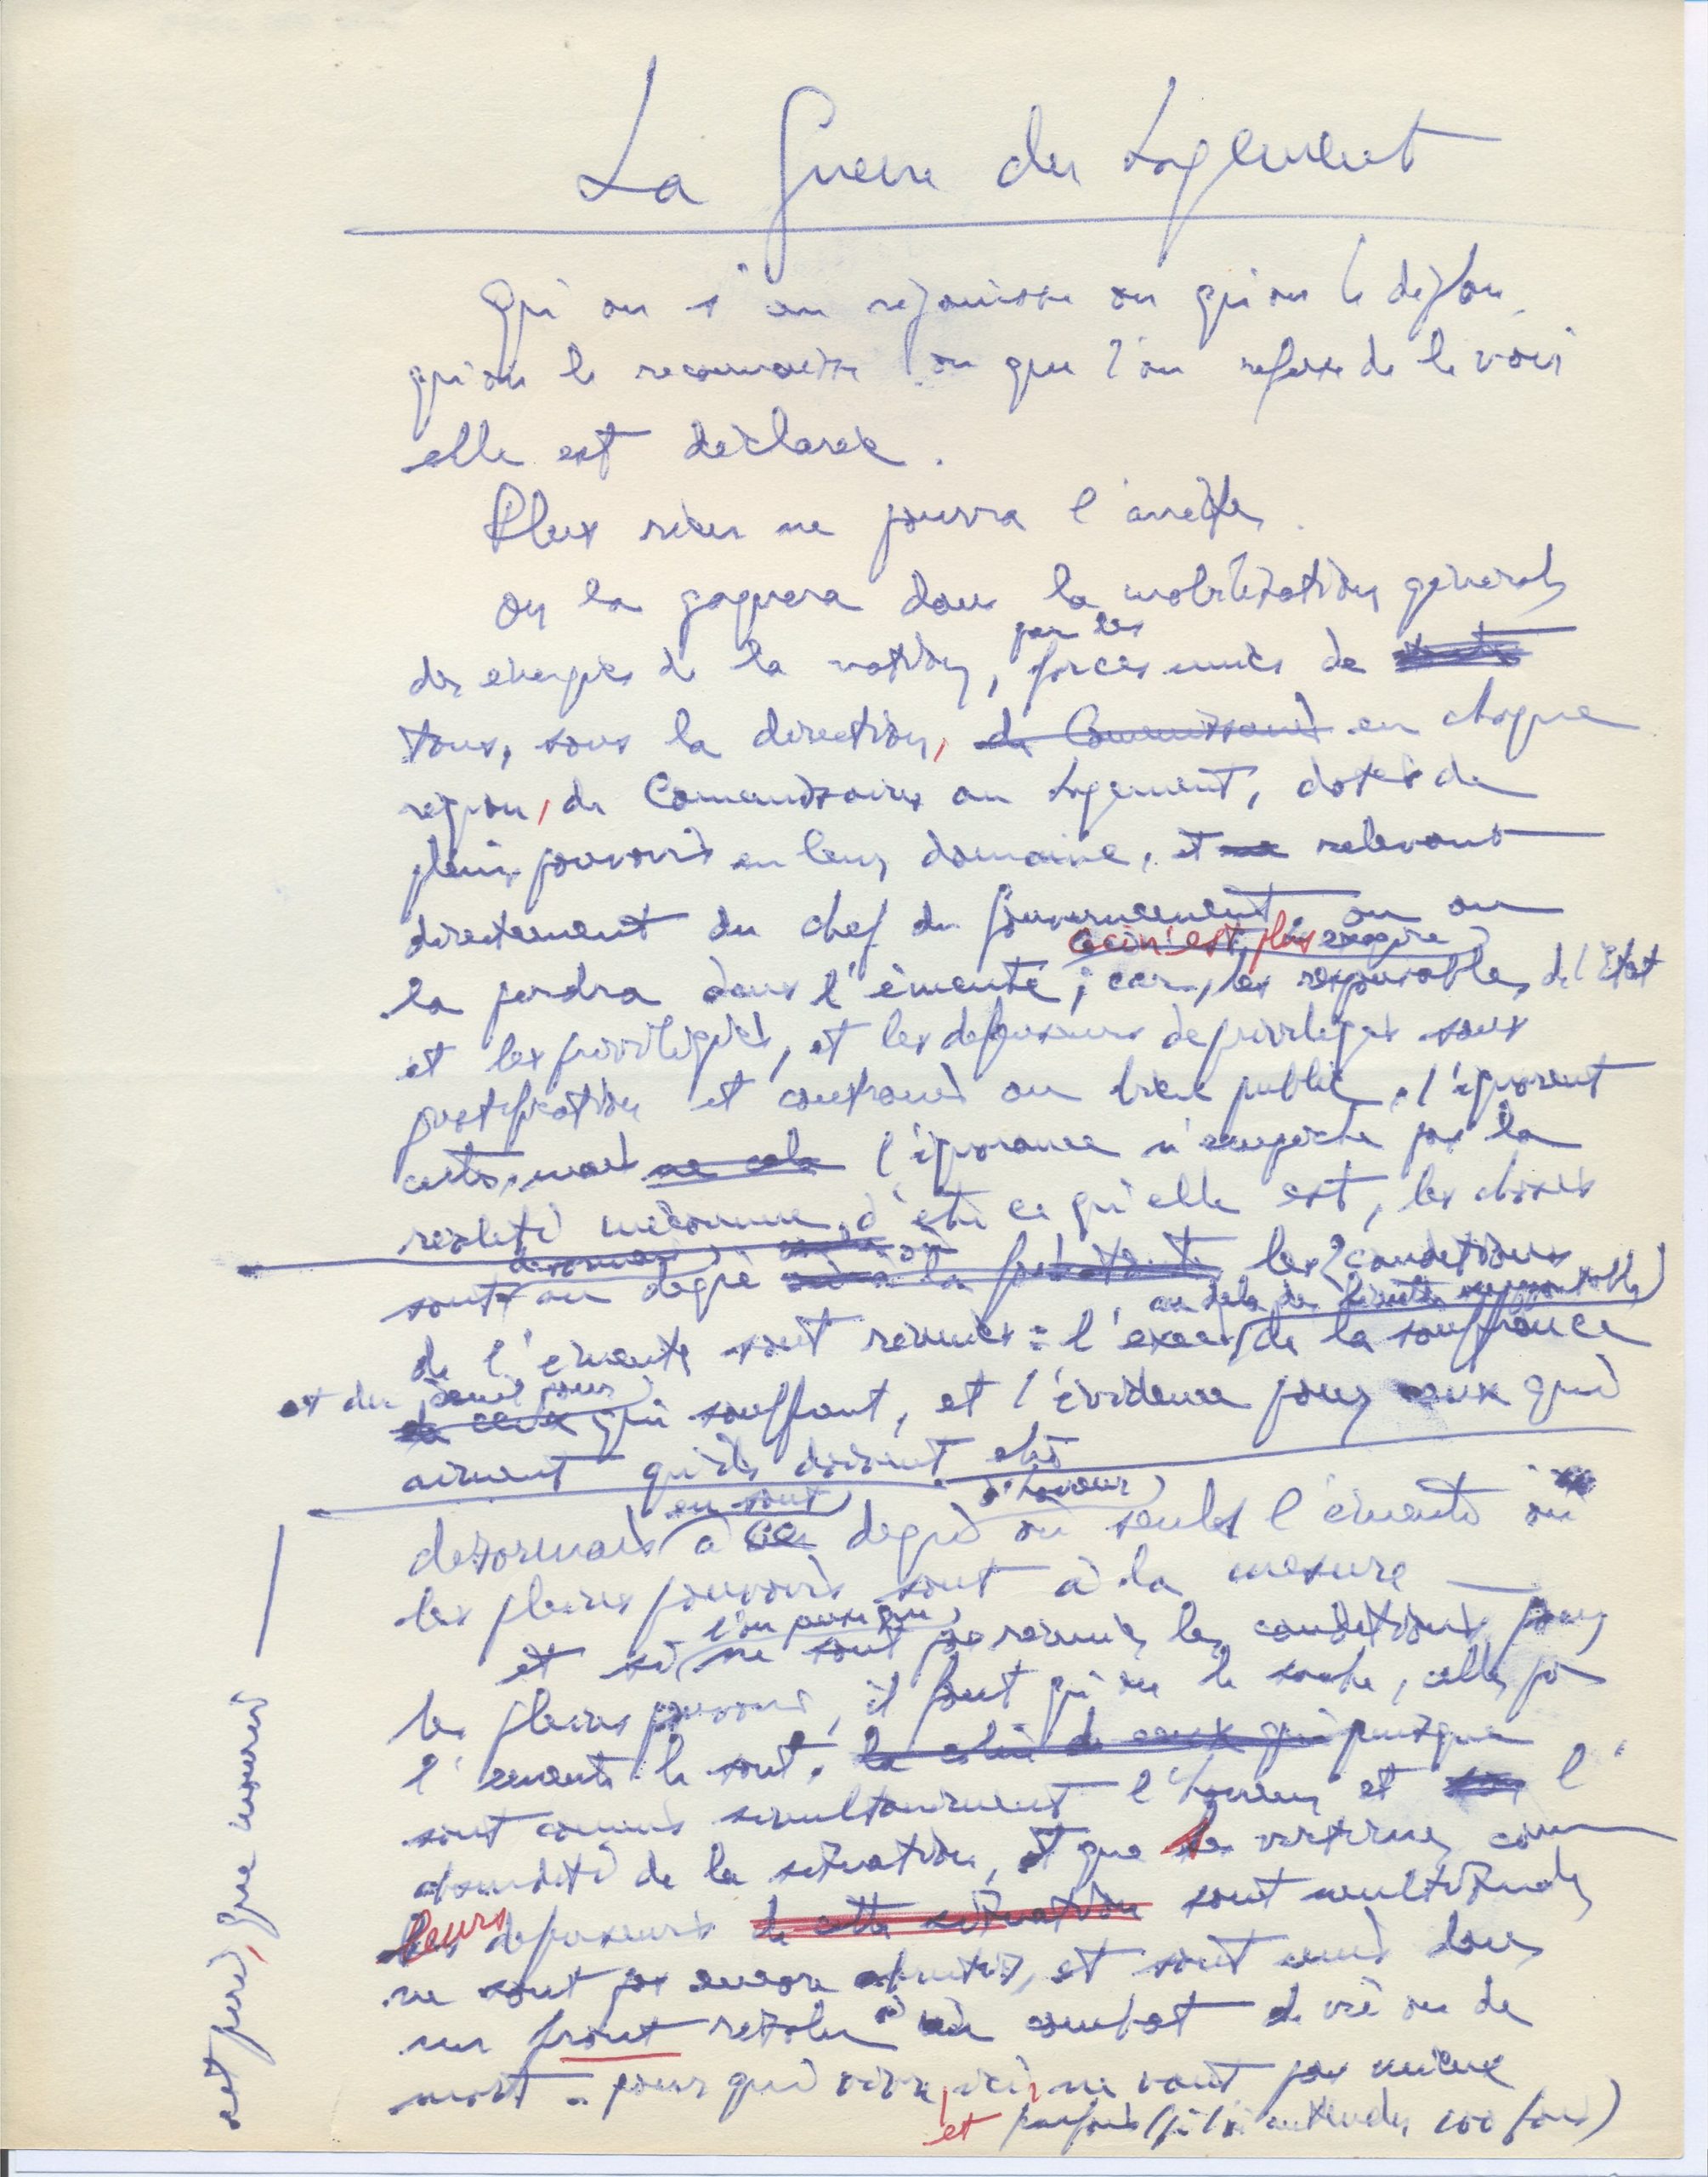 La Guerre du Logement
Qu'on s'en rejouisse ou qu'on le deplore,
qu'on le reconnaisse ou que l'on refuse de le voir
elle est déclarée.
Plus rien ne pourra l'arrêter.
On la gagnera dans la mobilisation générale
des energies de la nation, par les forces unies de
tous, sous la direction, de Commissaires en chaque
region, de Commissaires au Logement, dotés de
pleins pouvoirs en leur domaine, et relevant
directement du chef du Gouvernement, ou on
la perdra dans l'émeute ; car, les responsables de l'Etat
ceci n'est plus
et les privilégiés, et les defenseurs de privileges sans
justification et contraires au bien public, l'ignorent
certes, mais ne cela l'ignorance n'empeche pas la
realité méconnue, d'être ce qu'elle est, les choses
sont au degré les conditions
desormais
de l'émeute sont reunies : l'exces de la souffrance
au dela des limites supportables
et du pour
de ceux qui souffrent, et l'évidence pour ceux qui
aiment qu'ils doivent
desormais en sont à ce degré d'horreur où seules l'émeute ou
les pleins pouvoirs sont à la mesure
et si ne sont pas reunies les conditions pour
les pleins pouvoirs, il faut qu'on le sache, celles pour
l'emeute le sont, de ceux qui puisque
sont connus simultanément l'horreur et l'
absurdité de la situation, et que les victimes, comme
leurs defenseurs de cette situation sont multitude,
ne sont pas encore abrutis, et sont unis dans
un front resolu à un combat de vie ou de
mort = pour qui vivre ici, ne vaut pas mieux
et parfois (je l'ai entendu 100 fois)
est pire, que mourir